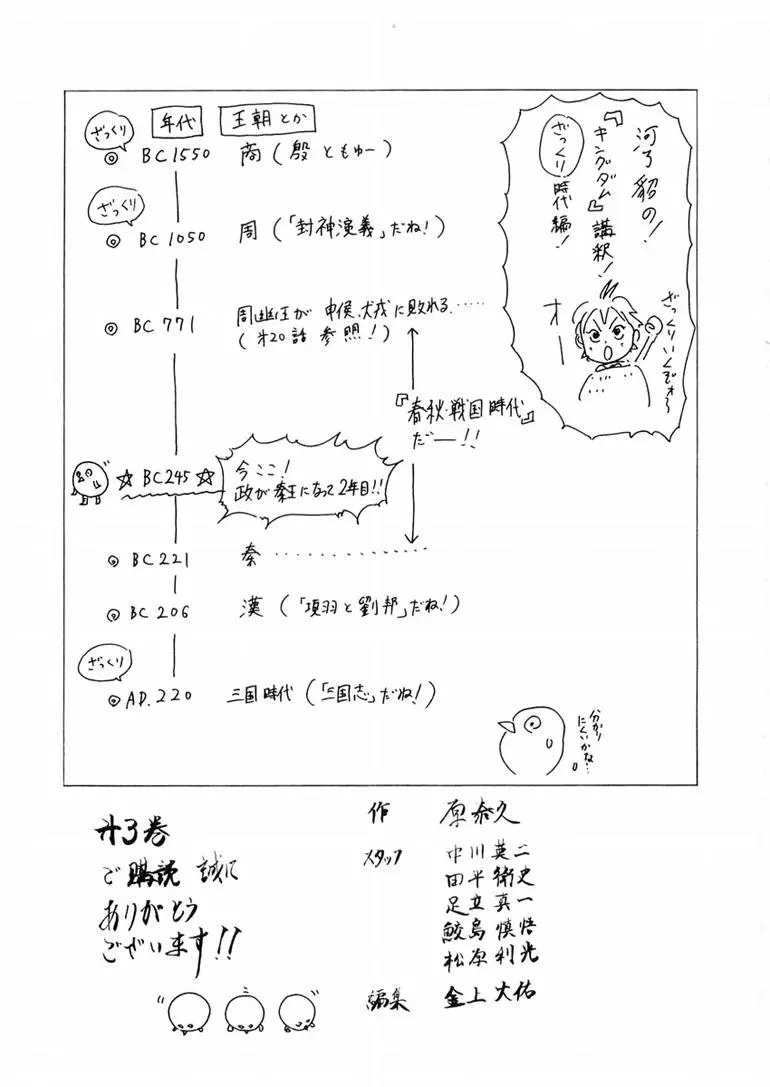 河了貂の!
『キングダム』講釈!
ざっくり時代編!
ざっくりいくぞォ〜
オー
年代 王朝とか
ざっくり
◎ BC1550 商(殷ともゆー)
ざっくり
◎ BC1050 周(「封神演義」だね!)
◎ BC771 周幽王が申侯、犬戎に敗れる……
(才20話 参照!)
『春秋・戦国時代』
だー!!
☆BC245☆ 今ここ!
政が秦王になって2年目!!
◎ BC221 秦……………
◎ BC206 漢(「項羽と劉邦」だね!)
ざっくり
◎ AD.220 三国時代(「三国志」だね!)
分かり
にくいかな…
才3巻
ご購読 誠に
ありがとう
ございます!!
作 原泰久
スタッフ 中川英二
田平衛史
足立真一
鮫島慎悟
松原利光
編集 金上大佑